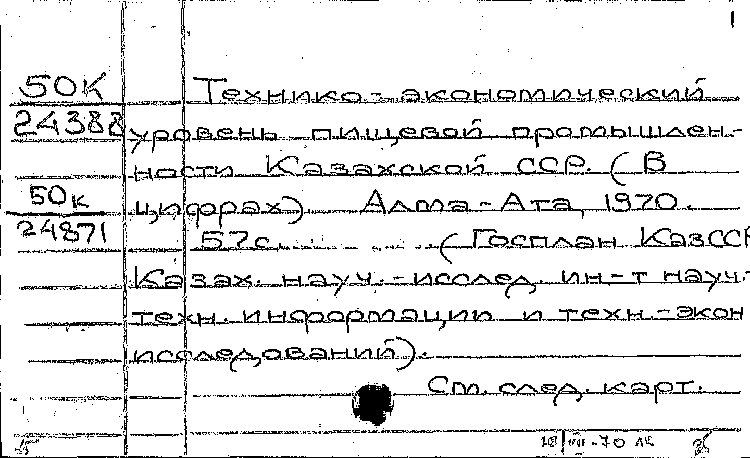 1
50К
24388
50к
24871
Технико-экономический
уровень пищевой промышлен-
ности Казахской ССР. (В
цифрах). Алма-Ата, 1970.
57с. (Госплан КазССР
Казах. науч.-исслед. ин-т науч.-
техн. информации и техн.-экон
исследований).
См. след. карт.